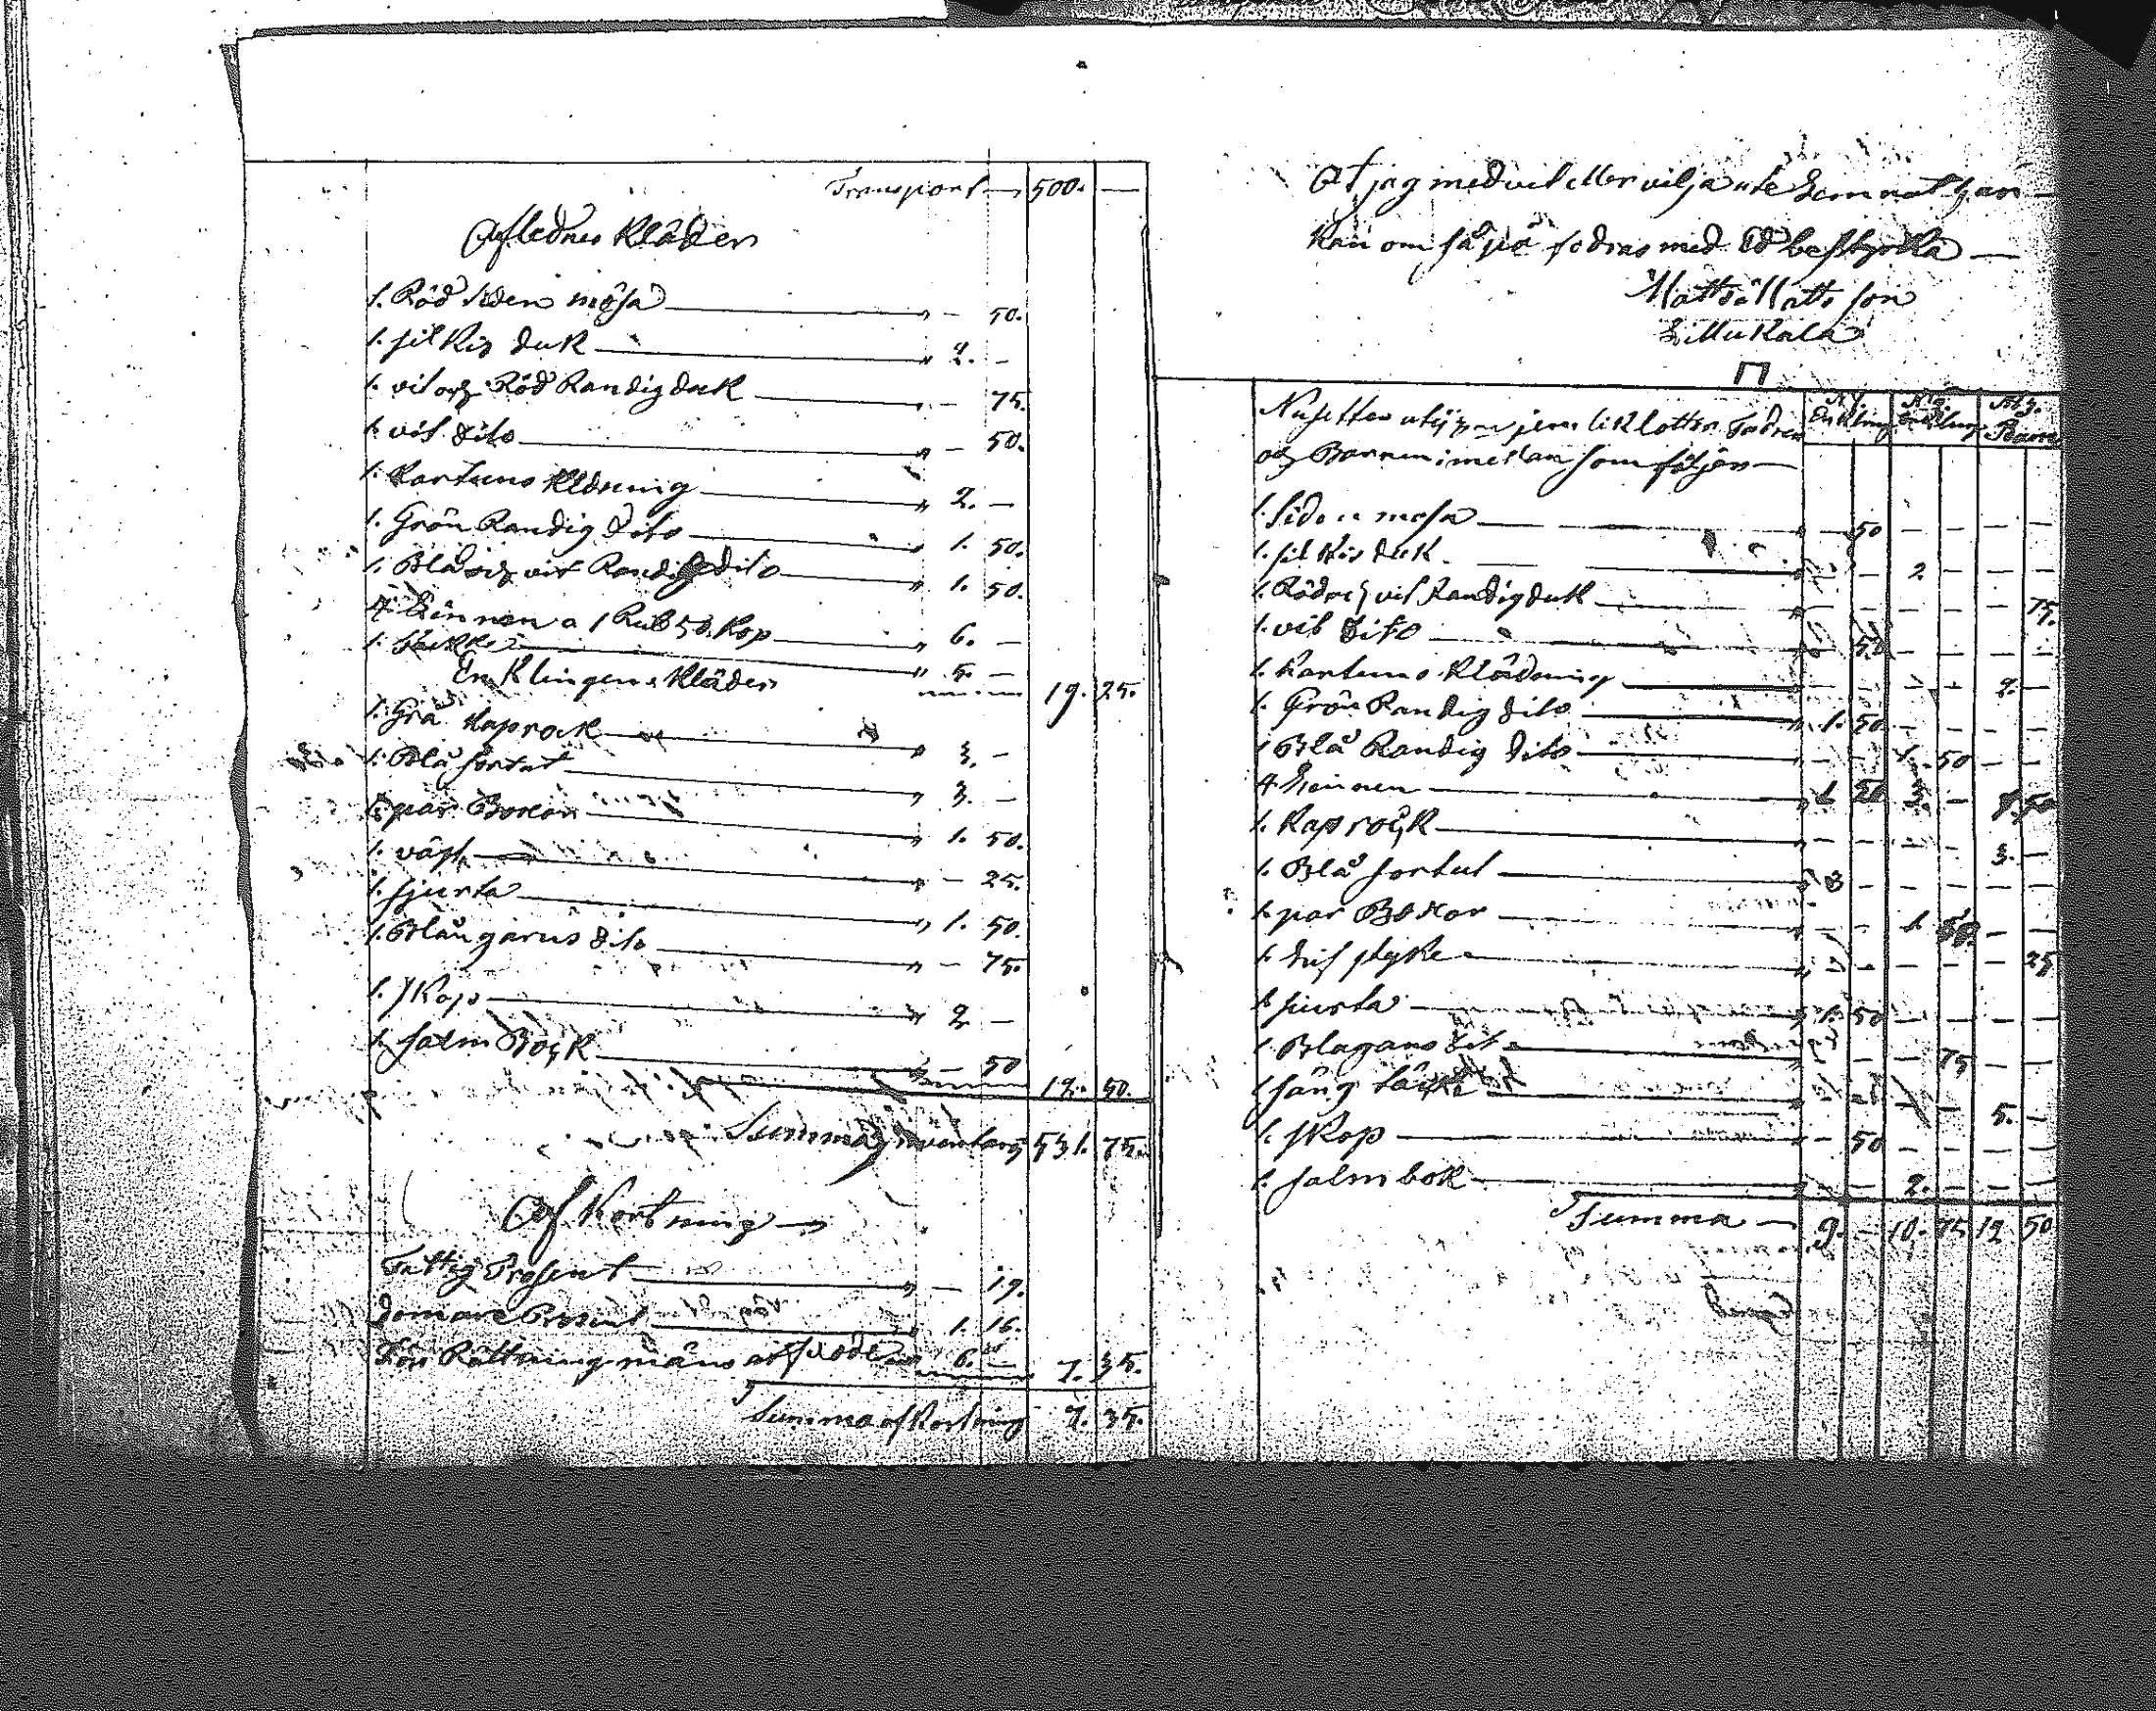 Transport — 500. —
Aflednes Kläder
1. Röd siden mösa — " — 50.
1. silkis duk — " 2. —
1. vit och Röd Randig duk — " — 75.
1. vit dito — " — 50.
1. Kartuns Klädning — " 2. —
1. Grön Randig dito — " 1. 50.
1. Blå och vit Randig dito — " 1. 50.
4 Linnen a 1 Rub 50. Kop — " 6. —
1. — " 5. —
19. 25.
Enklingens Kläder
1. Grå Kaprock — " 3. —
1. Blå sortut — " 3. —
1. par Boxor — " 1. 50.
1. väst — " — 25.
1. sjurta — " 1. 50.
1. Blångarns dito — " — 75.
1. skop — " 2 —
1. salm Bock — " — 50
12. 50.
Summa Inventarg 531. 75.
Afkortning —
Fattig Prosent — " — 19.
domare Prosent — " 1. 16.
för Rättning mäns 6. — 7. 35.
Summa afkortning 7. 35.
At jag med vet eller vilja ute lemnat har —
Kan om så på fodras med Ed bestyrka —
Matts Matts son
Lillukala
Nu settes uti jem lik lotter Fadren
och Barnen imellan som följer —
N 1. Enkling N 2. Enkling N 3. Barne
1. Siden mosa — " — 50 — — — —
1. silkis duk — " — — 2. — — —
1. Röd och vit Randig duk — " — — — — — 75.
1. vit dito — " — 50 — — — —
1. Kartuns Klädning — " — — — — 2. —
1. Grön Randig dito — " 1. 50 — — — —
1 Blå Randig dito — — — 1. 50 — —
4 Linnen — " 1 50 3. — 1. 50
1. Kaprock — " — — — — 3. —
1. Blå sortut — " 3 — — — — —
1. par Boxor — — — 1 50. — —
1. lifstyke — " — — — — — 25
1 sjurta — " 1. 50 — — — —
1 Blagans dito — " — — — 75 — —
1 säng — " — — — — 5. —
1. skop — " — 50 — — — —
1. salmbok — " — — 2. — — —
Summa — 9. — 10. 75 12 50